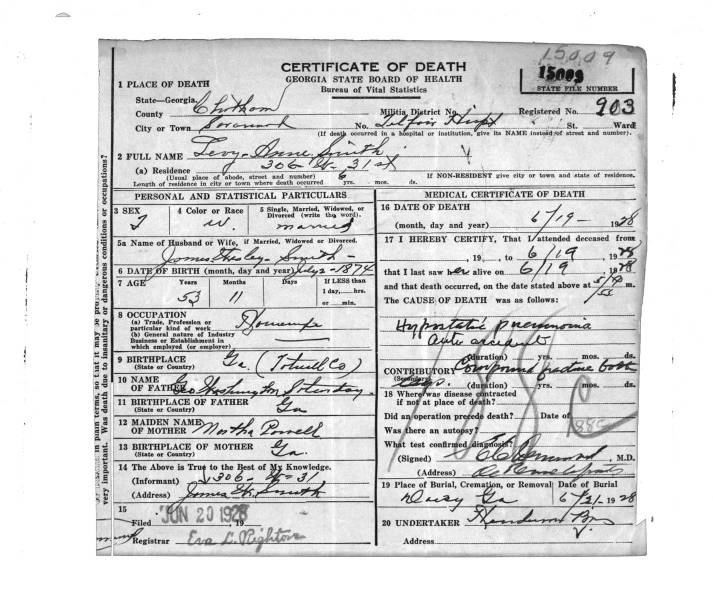 15009
CERTIFICATE OF DEATH
GEORGIA STATE BOARD OF HEALTH
Bureau of Vital Statistics
15009
STATE FILE NUMBER
1 PLACE OF DEATH
State—Georgia
County Chatham
Militia District No.
Registered No. 903
City or Town Savannah No. Telfair Hosp St. Ward
(If death occurred in a hospital or institution, give its NAME instead of street and number).
2 FULL NAME Levy Anne Smith
(a) Residence 306 W- 31 st
(Usual place of abode, street and number) If NON-RESIDENT give city or town and state of residence.
Length of residence in city or town where death occurred 6 yrs. mos. ds.
PERSONAL AND STATISTICAL PARTICULARS
3 SEX
F
4 Color or Race
W.
5 Single, Married, Widowed, or Divorced (write the word).
married
5a Name of Husband or Wife, if Married, Widowed or Divorced.
James Smith
6 DATE OF BIRTH (month, day and year) July 2-1874
7 AGE Years Months Days If LESS than
53 11 1 day,....hrs.
or ....min.
8 OCCUPATION
(a) Trade, Profession or particular kind of work
(b) General nature of Industry Business or Establishment in which employed (or employer)
Housewife
9 BIRTHPLACE Ga. (Co)
(State or Country)
10 NAME OF FATHER Geo Washington
11 BIRTHPLACE OF FATHER Ga
(State or Country)
12 MAIDEN NAME OF MOTHER Martha Powell
13 BIRTHPLACE OF MOTHER Ga.
(State or Country)
14 The Above is True to the Best of My Knowledge.
(Informant) 306- W- 31
(Address) James W. Smith
15
Filed JUN 20 1928, 19
Registrar Eva L. Righton
MEDICAL CERTIFICATE OF DEATH
16 DATE OF DEATH
(month, day and year) 6/19- 1928
17 I HEREBY CERTIFY, That I attended deceased from
, 19 , to 6/19 1928
that I last saw her alive on 6/19 1928
and that death occurred, on the date stated above at m.
The CAUSE OF DEATH was as follows:
Hypostatic Pneumonia
auto accident
(duration) yrs. mos. ds.
CONTRIBUTORY Compound fracture both
(Secondary) legs. (duration) yrs. mos. ds.
18 Where was disease contracted
if not at place of death?
Did an operation precede death? Date of
Was there an autopsy?
What test confirmed diagnosis?
(Signed) , M.D.
(Address)
19 Place of Burial, Cremation, or Removal Date of Burial
Daisy Ga 6/21-1928
20 UNDERTAKER Henderson Bros
Address
in plain terms, so that it may be properly
Was death due to insanitary or dangerous conditions or occupations?